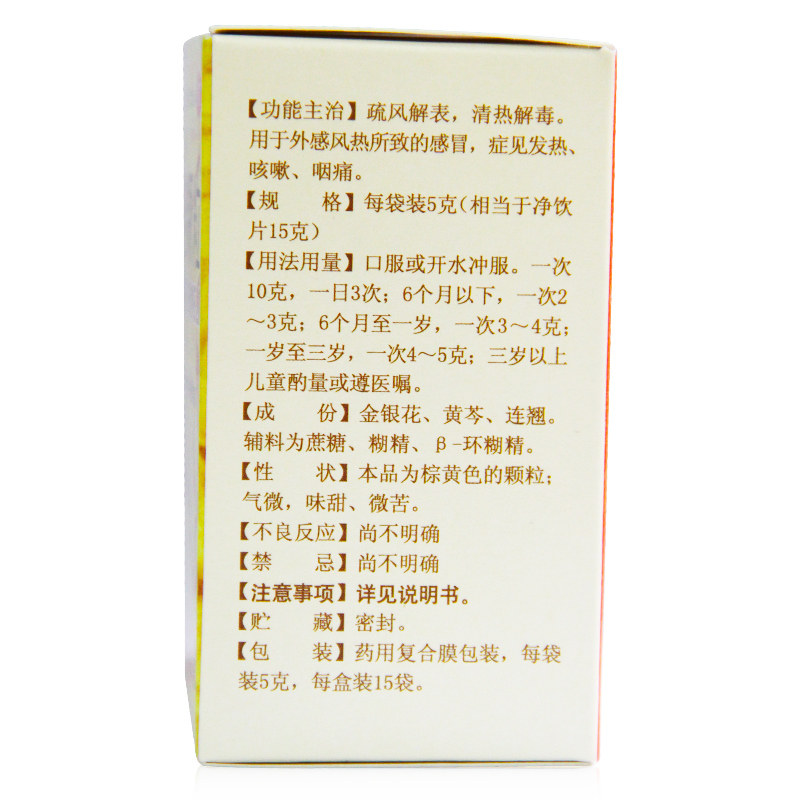 【功能主治】疏风解表，清热解毒。
用于外感风热所致的感冒，症见发热、
咳嗽、咽痛。
【规　　格】每袋装5克（相当于净饮
片15克）
【用法用量】口服或开水冲服。一次
10克，一日3次；6个月以下，一次2
～3克；6个月至一岁，一次3～4克；
一岁至三岁，一次4～5克；三岁以上
儿童酌量或遵医嘱。
【成　　份】金银花、黄芩、连翘。
辅料为蔗糖、糊精、β-环糊精。
【性　　状】本品为棕黄色的颗粒；
气微，味甜、微苦。
【不良反应】尚不明确
【禁　　忌】尚不明确
【注意事项】详见说明书。
【贮　　藏】密封。
【包　　装】药用复合膜包装，每袋
装5克，每盒装15袋。